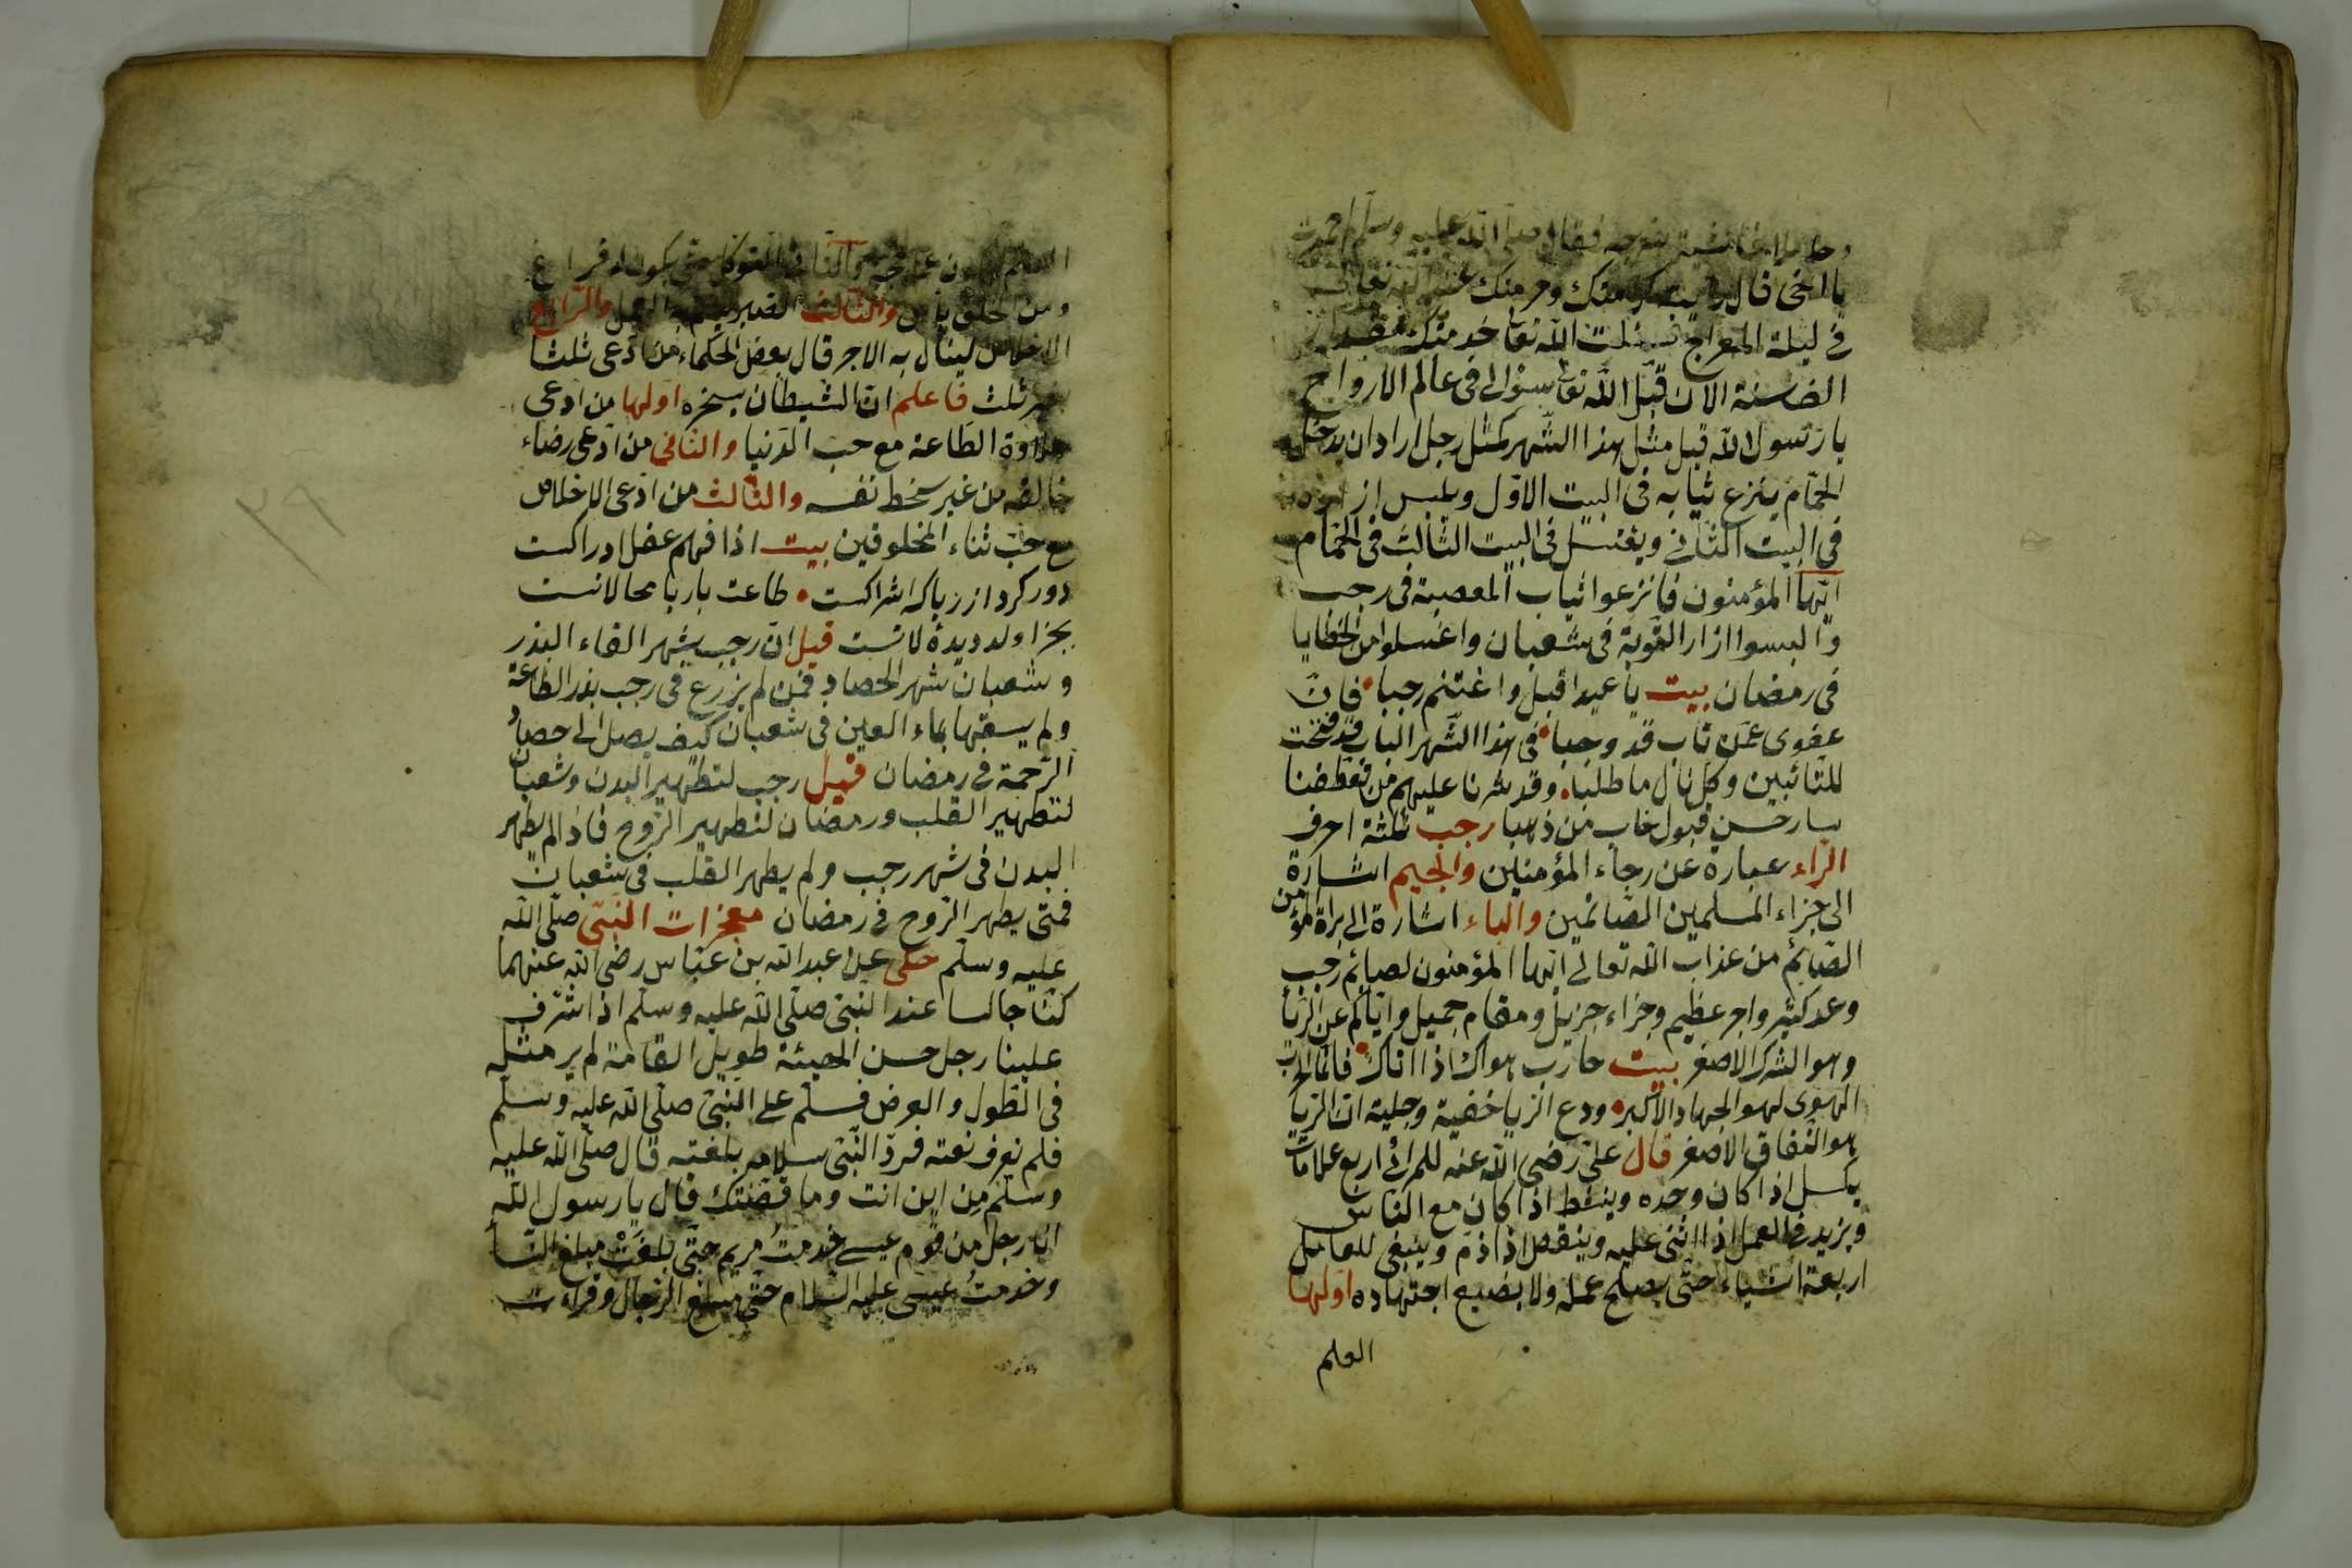 فقال صلى الله عليه وسلم
يا اخى قال رايت كرمتك وحرمتك عند الله تعالى
فى ليلة المعراج فسئلت الله تعا خدمتك
الف سنة الان قبل الله تعا سؤالى فى عالم الارواح
يا رسول الله قيل مثل هذا الشهر كمثل رجل اراد ان يدخل
الحمّام ينزع ثيابه فى البيت الاول ويلبس ازاره
فى البيت الثانى ويغتسل فى البيت الثالث فى الحمّام
ايّها المؤمنون فانزعوا ثياب المعصية فى رجب
والبسوا ازار التوبة فى شعبان واغسلوا من الخطايا
فى رمضان بيت يا عبد اقبل واغتنم رجبا فانّ
عفوى عمّن تاب قد وجبا فى هذا الشهر الباب قد فتحت
للتائبين وكل نال ما طلبا وقد نشرنا عليهم من تعطفنا
حسن قبول خاب من ذهبا رجب ثلثة احرف
الرّاء عبارة عن رجاء المؤمنين والجيم اشارة
الى جزاء المسلمين الصّائمين والباء اشارة الى براة المؤمن
الصّائم من عذاب الله تعالى ايّها المؤمنون لصائم رجب
وعد كثير واجر عظيم وجزاء جزيل ومقام جميل وايّاكم عن الرّيا
وهو الشرك الاصغر بيت حارب هواك اذا اتاك فانما حرب
الهوى لهو الجهاد الاكبر ودع الريا خفية وجلية انّ الريا
هو النفاق الاصغر قال علىّ رضى الله عنه للمرائى اربع علامات
يكسل اذا كان وحده وينشط اذا كان مع الناس
ويزيد فى العمل اذا اثنى عليه وينقص اذا ذم وينبغى للعامل
اربعة اشياء حتّى يصلح عمله ولا يضيع اجتهاده اولها
العلم
العلم والثانى التوكل حتى يكون له فراغ
ومن الخلق يأس والثالث الصبر ليتم به العمل والرّابع
الاخلاص لينال به الاجر قال بعض الحكماء من ادّعى ثلثا
بغير ثلث فاعلم انّ الشيطان يسخره اولها من ادّعى
حلاوة الطّاعة مع حبّ الدّنيا والثانى من ادّعى رضاء
خالقه من غير سخط نفسه والثالث من ادّعى الاخلاص
مع حبّ ثناء المخلوقين بيت اذا فهم عقل ادراكست
دور كرد از رياكه اشراكست طاعت باريا محالانست
بجزا ولد ديدهٔ لانست قيل انّ رجب شهر القاء البذر
وشعبان شهر الحصاد فمن لم يزرع فى رجب بذر الطاعة
ولم يسقها بماء العين فى شعبان كيف يصل الى حصاد
الرّحمة فى رمضان قيل رجب لتطهير البدن وشعبان
لتطهير القلب ورمضان لتطهير الرّوح فاذا لم يطهر
البدن فى شهر رجب ولم يطهر القلب فى شعبان
فمتى يطهر الرّوح فى رمضان معجزات النبىّ صلّى الله
عليه وسلّم حكى عن عبد الله بن عبّاس رضى الله عنهما
كنّا جالسا عند النّبىّ صلّى الله عليه وسلّم اذ اشرف
علينا رجل حسن الهيئة طويل القامة لم ير مثله
فى الطّول والعرض فسلّم على النّبىّ صلّى الله عليه وسلّم
فلم نعرف نعته فردّ النّبىّ سلامه بلغته قال صلّى الله عليه
وسلّم من اين انت وما قصّتك قال يا رسول الله
انا رجل من قوم عيسى خدمتُ مريم حتّى بلغتْ مبلغ النّسأ
وخدمتُ عيسى عليه السّلام حتّى مبلغ الرّجال وقرات